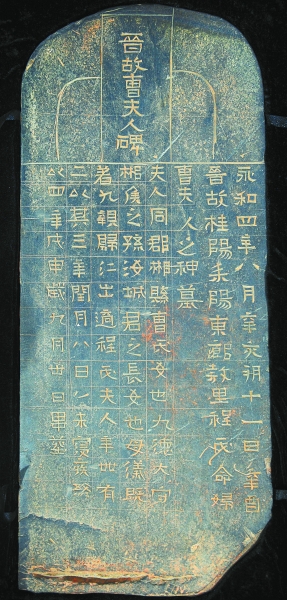 晉故曹夫人碑
永和四年八月辛亥朔十一日辛酉
晉故桂陽耒陽東鄙敦里程氏命婦
曹夫人之神墓
夫人同郡湘縣曹氏女也九德大守
湘侯之孫海城君之長女也母儀既
著九親歸仁出適程氏夫人年
二以其三年閏月八日
以四年戊申歲九月廿日畢墓